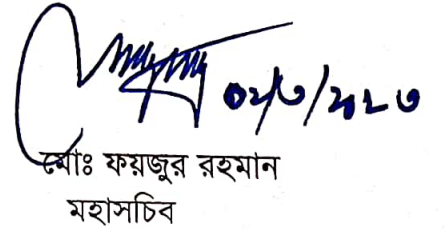 ০২/৩/২০২৩
মোঃ ফয়জুর রহমান
মহাসচিব